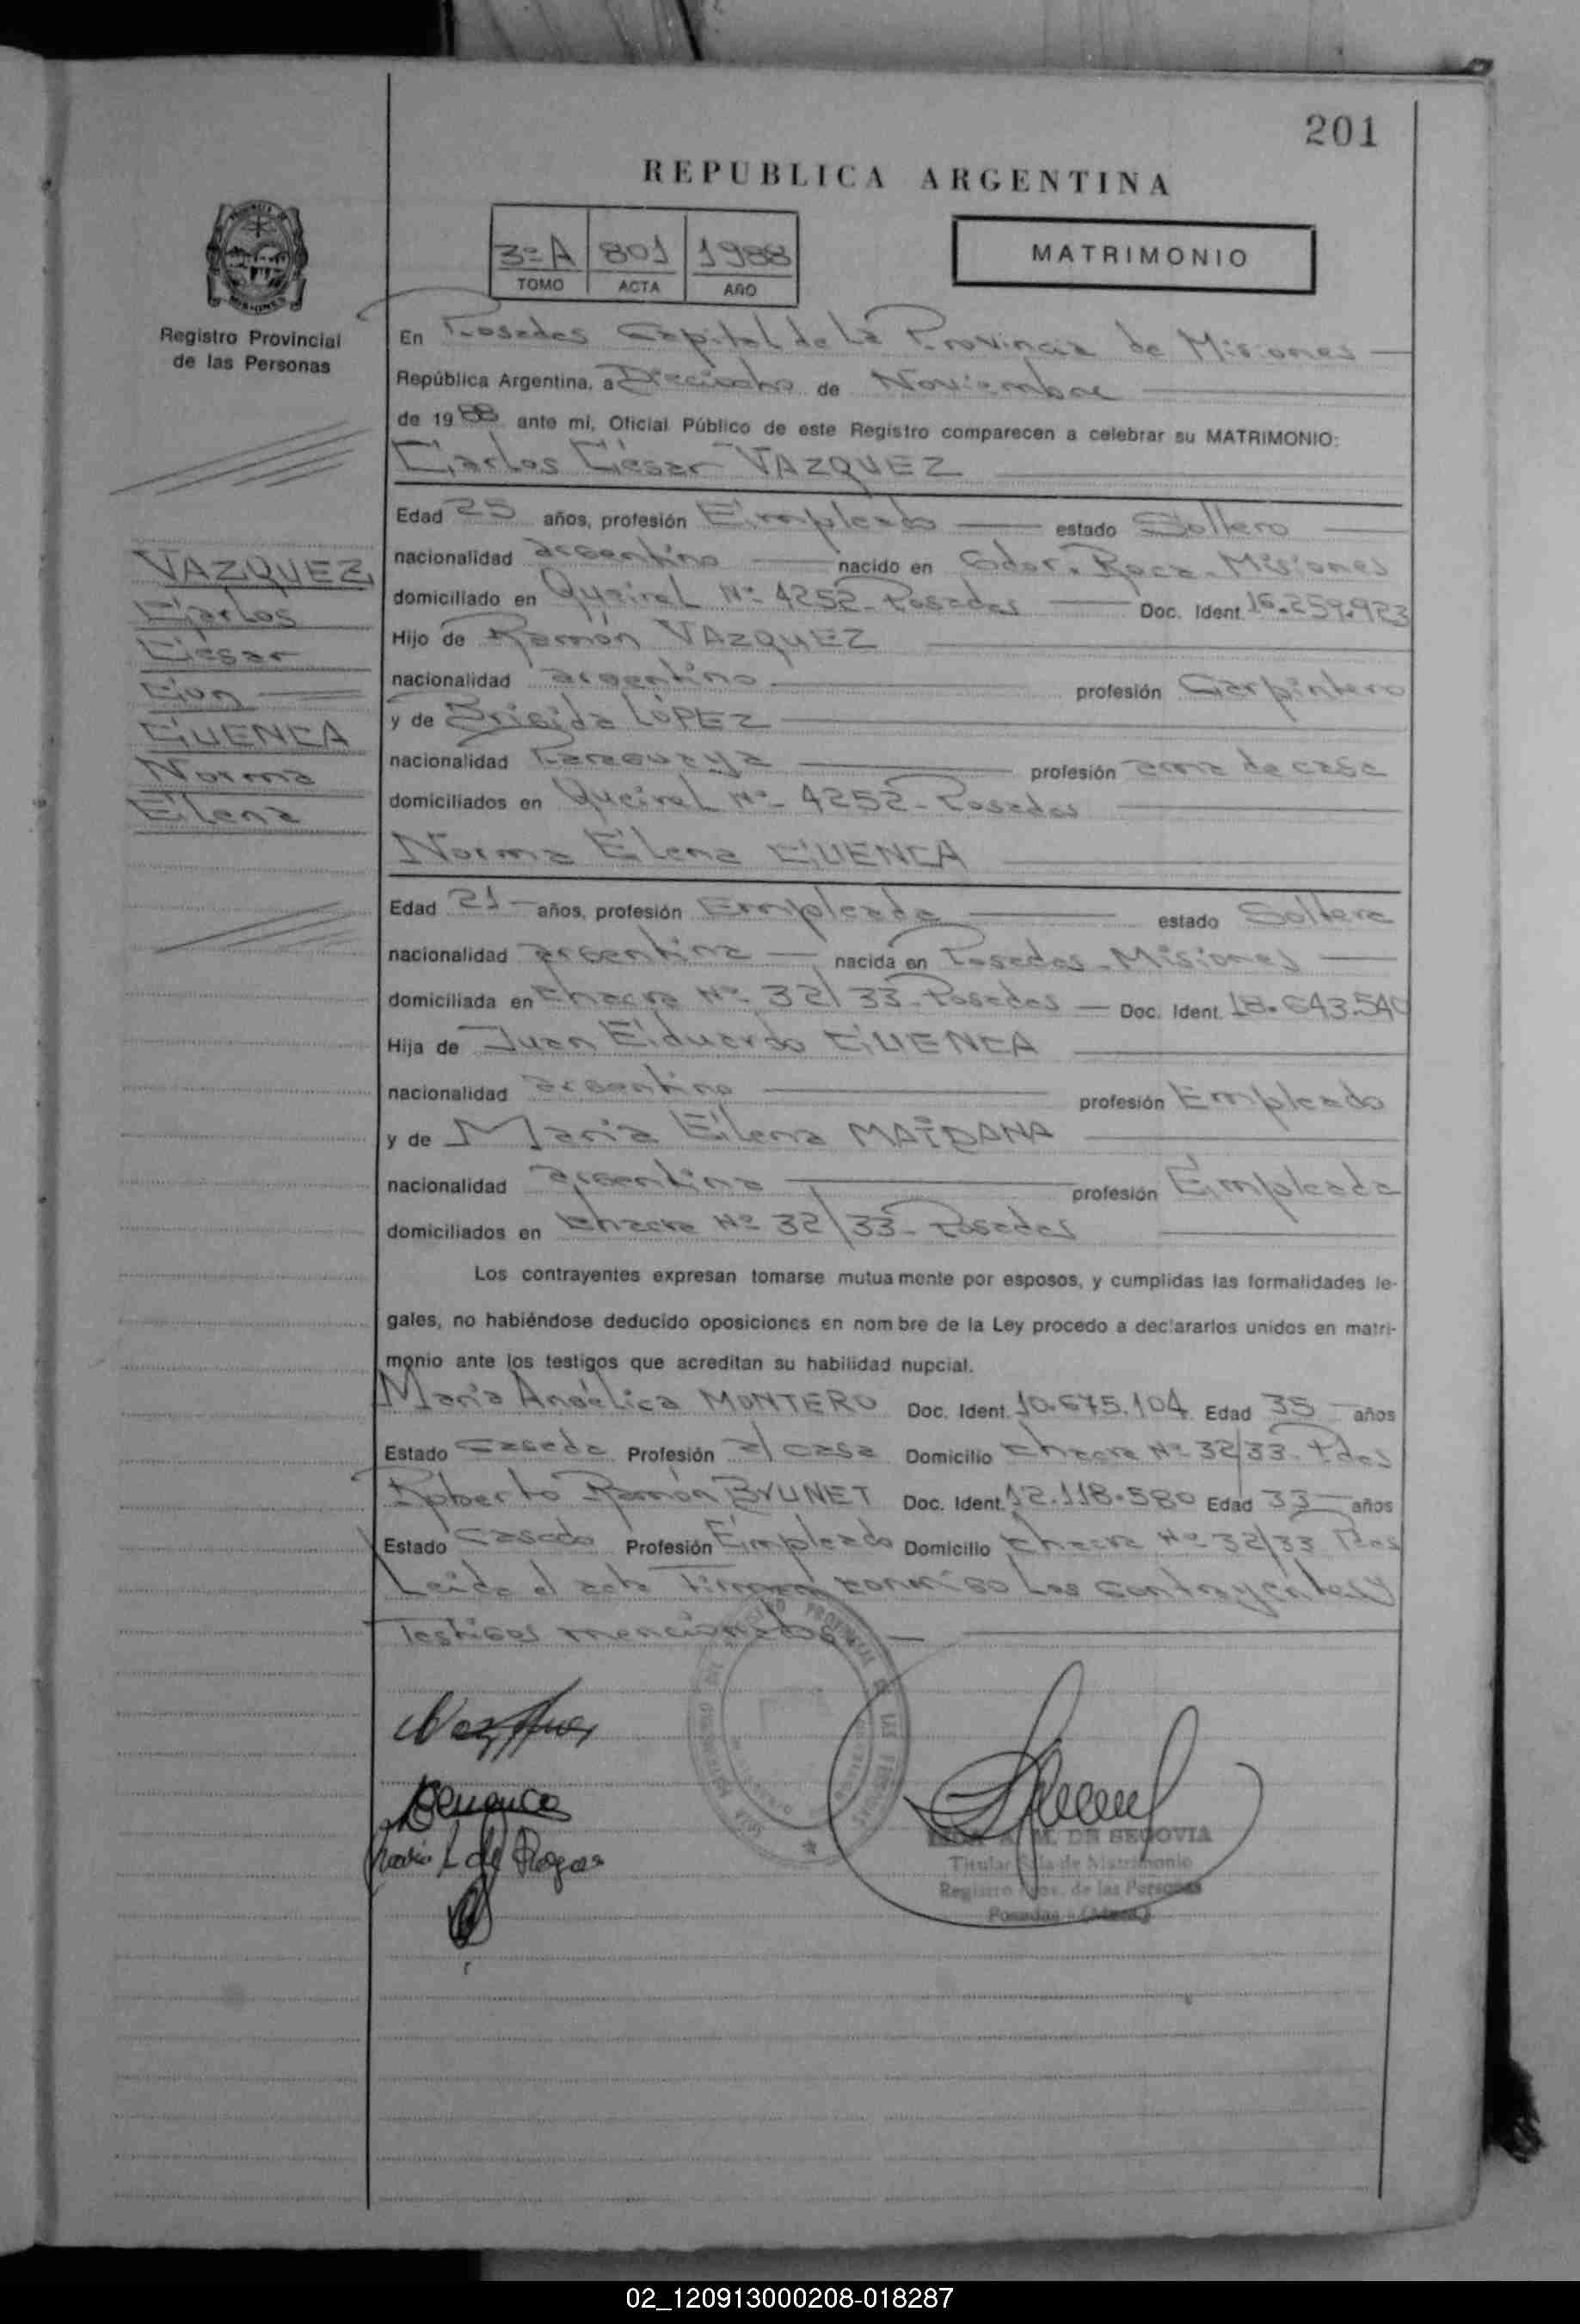 201
REPUBLICA ARGENTINA
3ºA 801 1988
TOMO ACTA AÑO
MATRIMONIO
Registro Provincial
de las Personas
En Posadas Capital de La Provincia de Misiones
República Argentina, a Dieciocho de Noviembre
de 1988 ante mí, Oficial Público de este Registro comparecen a celebrar su MATRIMONIO:
Carlos César VAZQUEZ
Edad 25 años, profesión Empleado estado Soltero
nacionalidad argentino nacido en Gdor. Roca - Misiones
domiciliado en Queirel Nº 4252 - Posadas Doc. Ident. 16.259.923
Hijo de Ramón VAZQUEZ
nacionalidad argentino profesión Carpintero
y de Brígida LÓPEZ
nacionalidad Paraguaya profesión ama de casa
domiciliados en Queirel Nº 4252 - Posadas
Norma Elena CUENCA
VAZQUEZ
Carlos
César
Con
CUENCA
Norma
Elena
Edad 21 años, profesión Empleada estado Soltera
nacionalidad argentina nacida en Posadas - Misiones
domiciliada en Chacra Nº 32/33 - Posadas Doc. Ident. 18.643.540
Hija de Juan Eduardo CUENCA
nacionalidad argentino profesión Empleado
y de María Elena MAIDANA
nacionalidad argentina profesión Empleada
domiciliados en Chacra Nº 32/33 - Posadas
Los contrayentes expresan tomarse mutuamente por esposos, y cumplidas las formalidades le-
gales, no habiéndose deducido oposiciones en nombre de la Ley procedo a declararlos unidos en matri-
monio ante los testigos que acreditan su habilidad nupcial.
María Angélica MONTERO Doc. Ident. 10.675.104 Edad 35 años
Estado Casada Profesión a/ casa Domicilio Chacra Nº 32/33 - Pdas
Roberto Ramón BRUNET Doc. Ident. 12.118.580 Edad 33 años
Estado Casado Profesión Empleado Domicilio Chacra Nº 32/33 Pdas
Leída el acta Firman conmigo Los contrayentes y
Testigos mencionados.
M. DE SEGOVIA
Titular Sala de Matrimonio
Registro Prov. de las Personas
Posadas - (Mnes.)
02_120913000208-018287